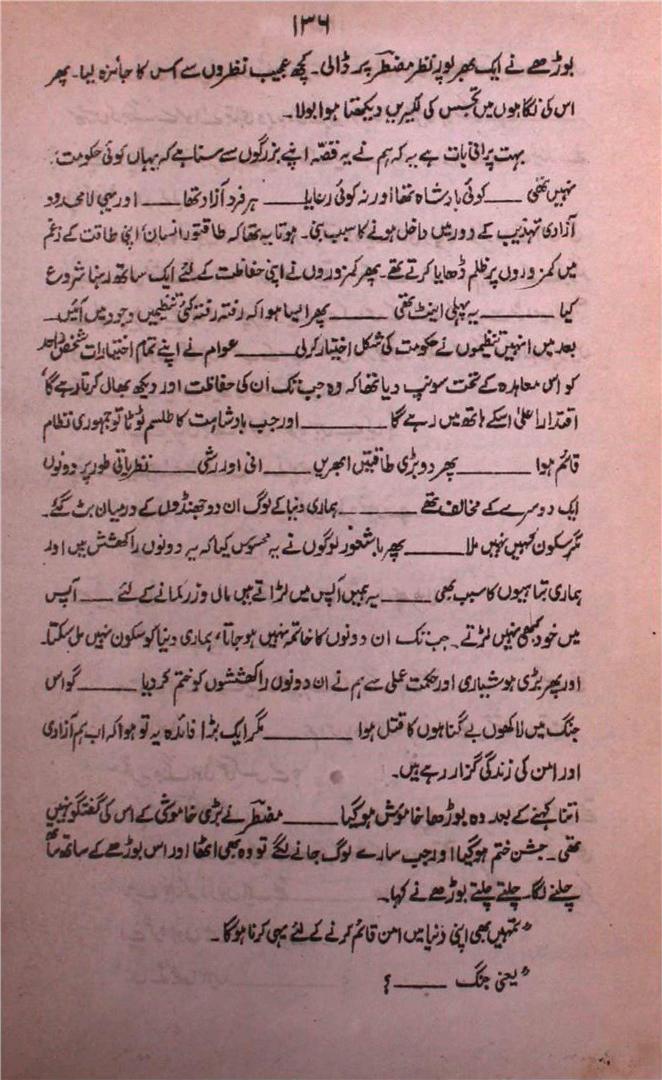 ۱۳۶
بوڑھے نے ایک بھرپور نظر مضطر پر ڈالی۔ کچھ عجیب نظروں سے اس کا جائزہ لیا۔ پھر
اس کی نگاہوں میں تجسس کی لکیریں دیکھتا ہوا بولا۔
بہت پرانی بات ہے یہ کہ ہم نے یہ قصّہ اپنے بزرگوں سے سنا ہے کہ یہاں کوئی حکومت
نہیں تھی ــــ کوئی بادشاہ تھا اور نہ کوئی رعایا ــــ ہر فرد آزاد تھا ــــ اور یہی لامحدود
آزادی تہذیب کے دور میں داخل ہونے کا سبب بنی۔ ہوتا یہ تھا کہ طاقتور انسان اپنی طاقت کے زعم
میں کمزوروں پر ظلم ڈھایا کرتے تھے۔ پھر کمزوروں نے اپنی حفاظت کے لئے ایک ساتھ رہنا شروع
کیا ــــ یہ پہلی اینٹ تھی ــــ پھر ایسا ہوا کہ رفتہ رفتہ کئی تنظیمیں وجود میں آئیں۔
بعد میں انہیں تنظیموں نے حکومت کی شکل اختیار کر لی ــــ عوام نے اپنے تمام اختیارات شخص واحد
کو اس معاہدہ کے تحت سونپ دیا تھا کہ وہ جب تک ان کی حفاظت اور دیکھ بھال کرتا رہے گا
اقتدار اعلیٰ اسکے ہاتھ میں رہے گا ــــ اور جب بادشاہت کا طلسم ٹوٹا تو جمہوری نظام
قائم ہوا ــــ پھر دو بڑی طاقتیں ابھریں ــــ انی اور رشی ــــ نظریاتی طور پر دونوں
ایک دوسرے کے مخالف تھے ــــ ہماری دنیا کے لوگ ان دو جھنڈوں کے درمیان بٹ گئے۔
مگر سکون کہیں نہیں ملا ــــ پھر باشعور لوگوں نے یہ محسوس کیا کہ یہ دونوں راکھشش ہیں اور
ہماری تباہیوں کا سبب بھی ــــ یہ ہمیں آپس میں لڑاتے ہیں مال و زر کمانے کے لئے ــــ آپس
میں خود کبھی نہیں لڑتے۔ جب تک ان دونوں کا خاتمہ نہیں ہو جاتا، ہماری دنیا کو سکون نہیں مل سکتا۔
اور پھر بڑی ہوشیاری اور حکمت عملی سے ہم نے ان دونوں راکھششوں کو ختم کر دیا ــــ گو اس
جنگ میں لاکھوں بے گناہوں کا قتل ہوا ــــ مگر ایک بڑا فائدہ یہ تو ہوا کہ اب ہم آزادی
اور امن کی زندگی گزار رہے ہیں۔
اتنا کہنے کے بعد وہ بوڑھا خاموش ہو گیا ــــ مضطر نے بڑی خاموشی کے اس کی گفتگو نہیں
تھی۔ جشن ختم ہو گیا اور جب سارے لوگ جانے لگے تو وہ بھی اٹھا اور اس بوڑھے کے ساتھ ساتھ
چلنے لگا۔ چلتے چلتے بوڑھے نے کہا۔
"تمہیں بھی اپنی دنیا میں امن قائم کرنے کے لئے یہی کرنا ہوگا۔
"یعنی جنگ ــــ ؟